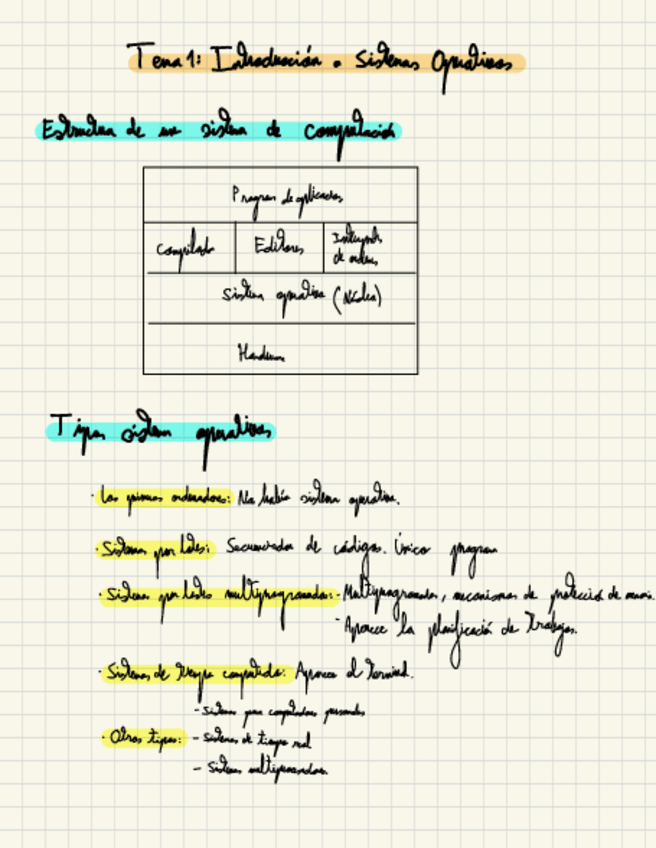 Tema 1: Introducción a Sistemas Operativos
Estructura de un sistema de computación
Programas de aplicación
Compilador Editores Intérprete
de ordenes
Sistema operativo (Núcleo)
Hardware
Tipos sistemas operativos
· Los primeros ordenadores: No había sistema operativo.
· Sistemas por lotes: Secuenciador de códigos. Único programa
· Sistemas por lotes multiprogramados: - Multiprogramados, mecanismos de protección de
- Aparece la planificación de trabajos.
· Sistemas de tiempo compartido: Aparece el terminal.
- Sistemas para computadores personales
· Otros tipos: - Sistemas de tiempo real
- Sistemas multiprocesadores.